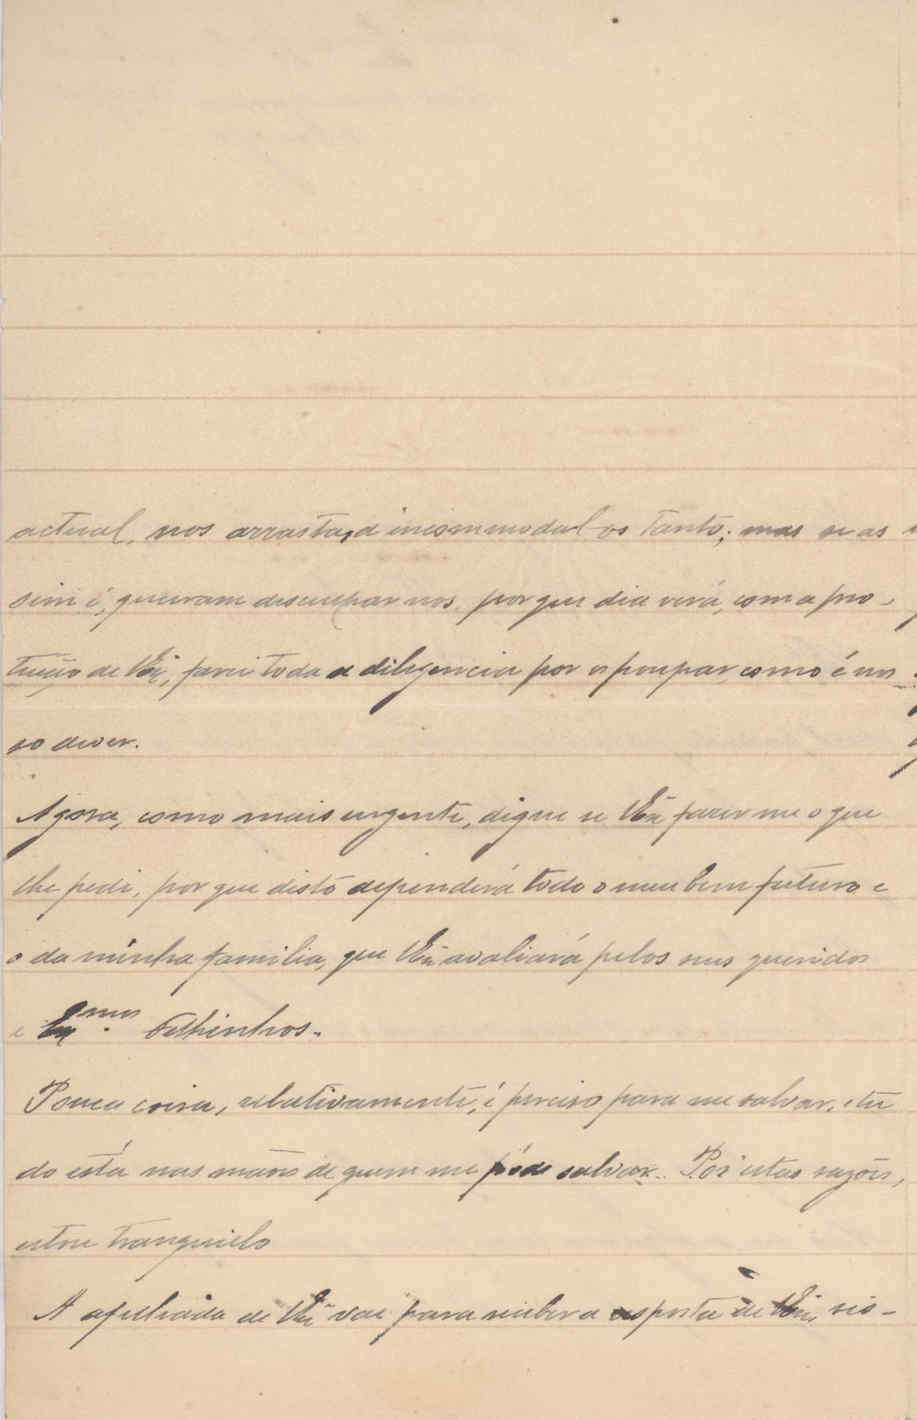 actual, nos arrasta, a incommodal-os tanto; mas se as
sim é, queiram desculpar nos, por que dia virá, com a pro-
tecção de VEx.ª, farei toda a diligencia por os poupar, como é nos
so dever.
Agora, como mais urgente, digne se VEx.ª fazer me o que
lhe pedi, por que disto dependerá todo o meu bem futuro e
o da minha familia, que VEx.ª avaliará pelos seus queridos
e Ex.mos Filhinhos.
Pouca coisa, relativamente, é preciso para me salvar, e tu
do está nas mãos de quem me póde salvar. Por estas razões,
estou tranquilo
A afilhada de VEx.ª vae para receber a resposta de VEx.ª, vis-